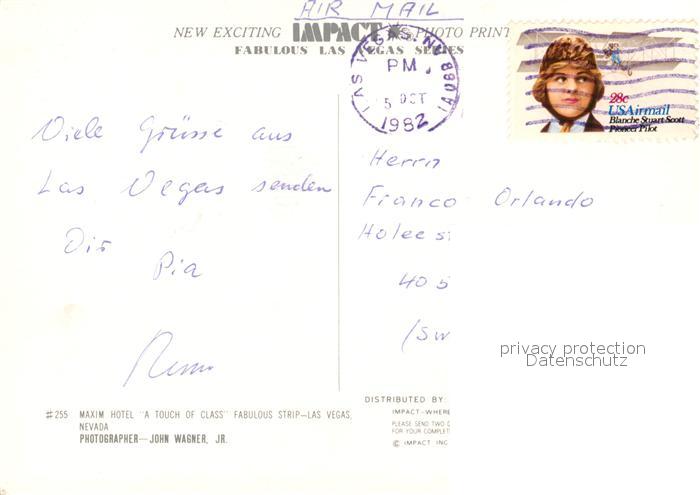 AIR MAIL
NEW EXCITING IMPACT PHOTO PRINT
FABULOUS LAS VEGAS SERIES
LAS VEGAS, NV
PM
5 OCT
1982
28c
USAirmail
Blanche Stuart Scott
Pioneer Pilot
Viele Grüsse aus
Las Vegas senden
Dir
Pia
Herrn
Franco Orlando
Holee st
405
(Sw
privacy protection
Datenschutz
#255 MAXIM HOTEL "A TOUCH OF CLASS" FABULOUS STRIP—LAS VEGAS,
NEVADA
PHOTOGRAPHER—JOHN WAGNER, JR.
DISTRIBUTED BY:
IMPACT-WHERE
PLEASE SEND TWO
FOR YOUR COMPLET
© IMPACT INC